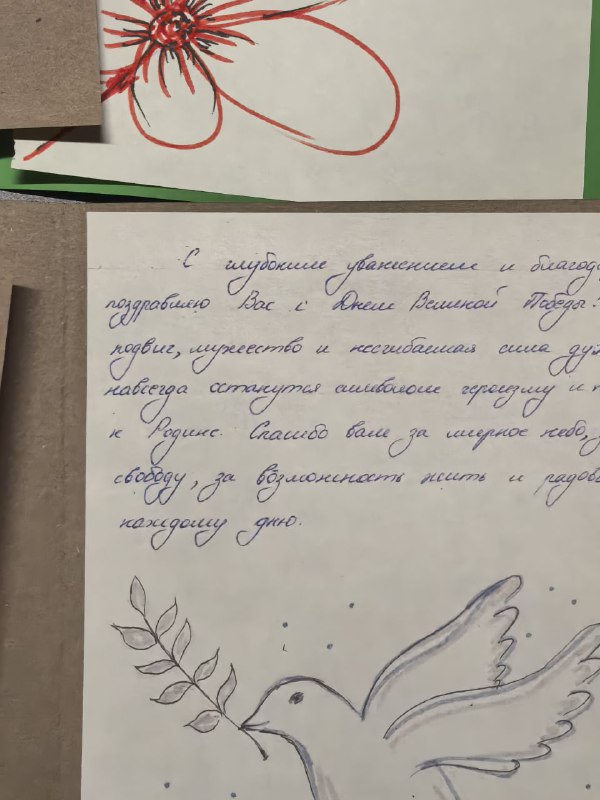 С глубоким уважением и благода
поздравляю Вас с Днем Великой Победы!
подвиг, мужество и несгибаемая сила ду
навсегда останутся символом героизму и
к Родине. Спасибо вам за мирное небо, з
свободу, за возможность жить и радова
каждому дню.